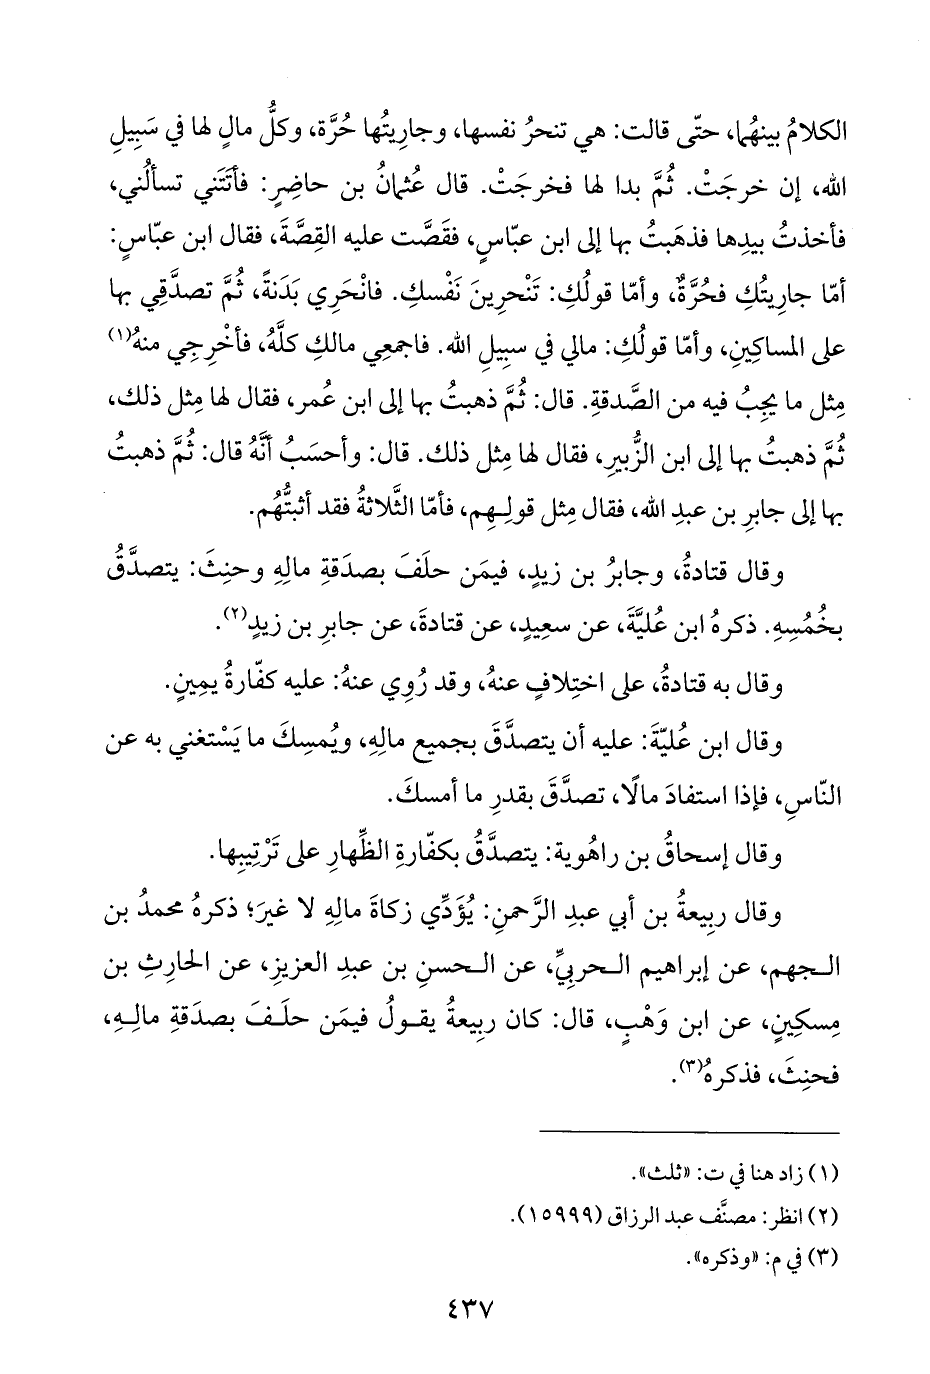 الكلامُ بينهُما، حتّى قالت: هي تنحرُ نفسها، وجارِيتُها حُرَّة، وكلُّ مالٍ لها في سَبِيلِ
الله، إن خرجَتْ. ثُمَّ بدا لها فخرجَتْ. قال عُثمانُ بن حاضِرٍ: فأتَتني تسألُني،
فأخذتُ بيدِها فذهَبتُ بها إلى ابن عبّاسٍ، فقَصَّت عليه القِصَّةَ، فقال ابن عبّاسٍ:
أمّا جاريتُكِ فحُرَّةٌ، وأمّا قولُكِ: تَنْحرِينَ نَفْسكِ. فانْحَرِي بَدَنةً، ثُمَّ تصدَّقِي بها
على المساكِينِ، وأمّا قولُكِ: مالي في سبِيلِ الله. فاجمعِي مالكِ كلَّهُ، فأخْرِجِي منهُ(١)
مِثل ما يجِبُ فيه من الصَّدقةِ. قال: ثُمَّ ذهبتُ بها إلى ابن عُمر، فقال لها مِثل ذلك،
ثُمَّ ذهبتُ بها إلى ابن الزُّبيرِ، فقال لها مِثل ذلك. قال: وأحسَبُ أنَّهُ قال: ثُمَّ ذهبتُ
بها إلى جابرِ بن عبدِ الله، فقال مِثل قولِـهِم، فأمّا الثَّلاثةُ فقد أثبتُّهُم.
وقال قتادةُ، وجابرُ بن زيدٍ، فيمَن حلَفَ بصدَقةِ مالِهِ وحنِثَ: يتصدَّقُ
بخُمُسِهِ. ذكرهُ ابن عُليَّةَ، عن سعِيدٍ، عن قتادةَ، عن جابرِ بن زيدٍ(٢).
وقال به قتادةُ، على اختِلافٍ عنهُ، وقد رُوِي عنهُ: عليه كفّارةُ يمِينٍ.
وقال ابن عُليّةَ: عليه أن يتصدَّقَ بجميع مالِهِ، ويُمسِكَ ما يَسْتغني به عن
النّاسِ، فإذا استفادَ مالًا، تصدَّقَ بقدرِ ما أمسكَ.
وقال إسحاقُ بن راهُوية: يتصدَّقُ بكفّارةِ الظِّهارِ على تَرْتِيبِها.
وقال ربِيعةُ بن أبي عبدِ الرَّحمنِ: يُؤَدِّي زكاةَ مالِهِ لا غيرَ؛ ذكرهُ محمدُ بن
الـجهمِ، عن إبراهيم الـحربيِّ، عن الـحسنِ بن عبدِ العزيزِ، عن الحارِثِ بن
مِسكِينٍ، عن ابن وَهْبٍ، قال: كان ربِيعةُ يقـولُ فيمَن حلَـفَ بصدَقةِ مالِـهِ،
فحنِثَ، فذكرهُ(٣).
(١) زاد هنا في ت: «ثلث».
(٢) انظر: مصنَّف عبد الرزاق (١٥٩٩٩).
(٣) في م: «وذكره».
٤٣٧